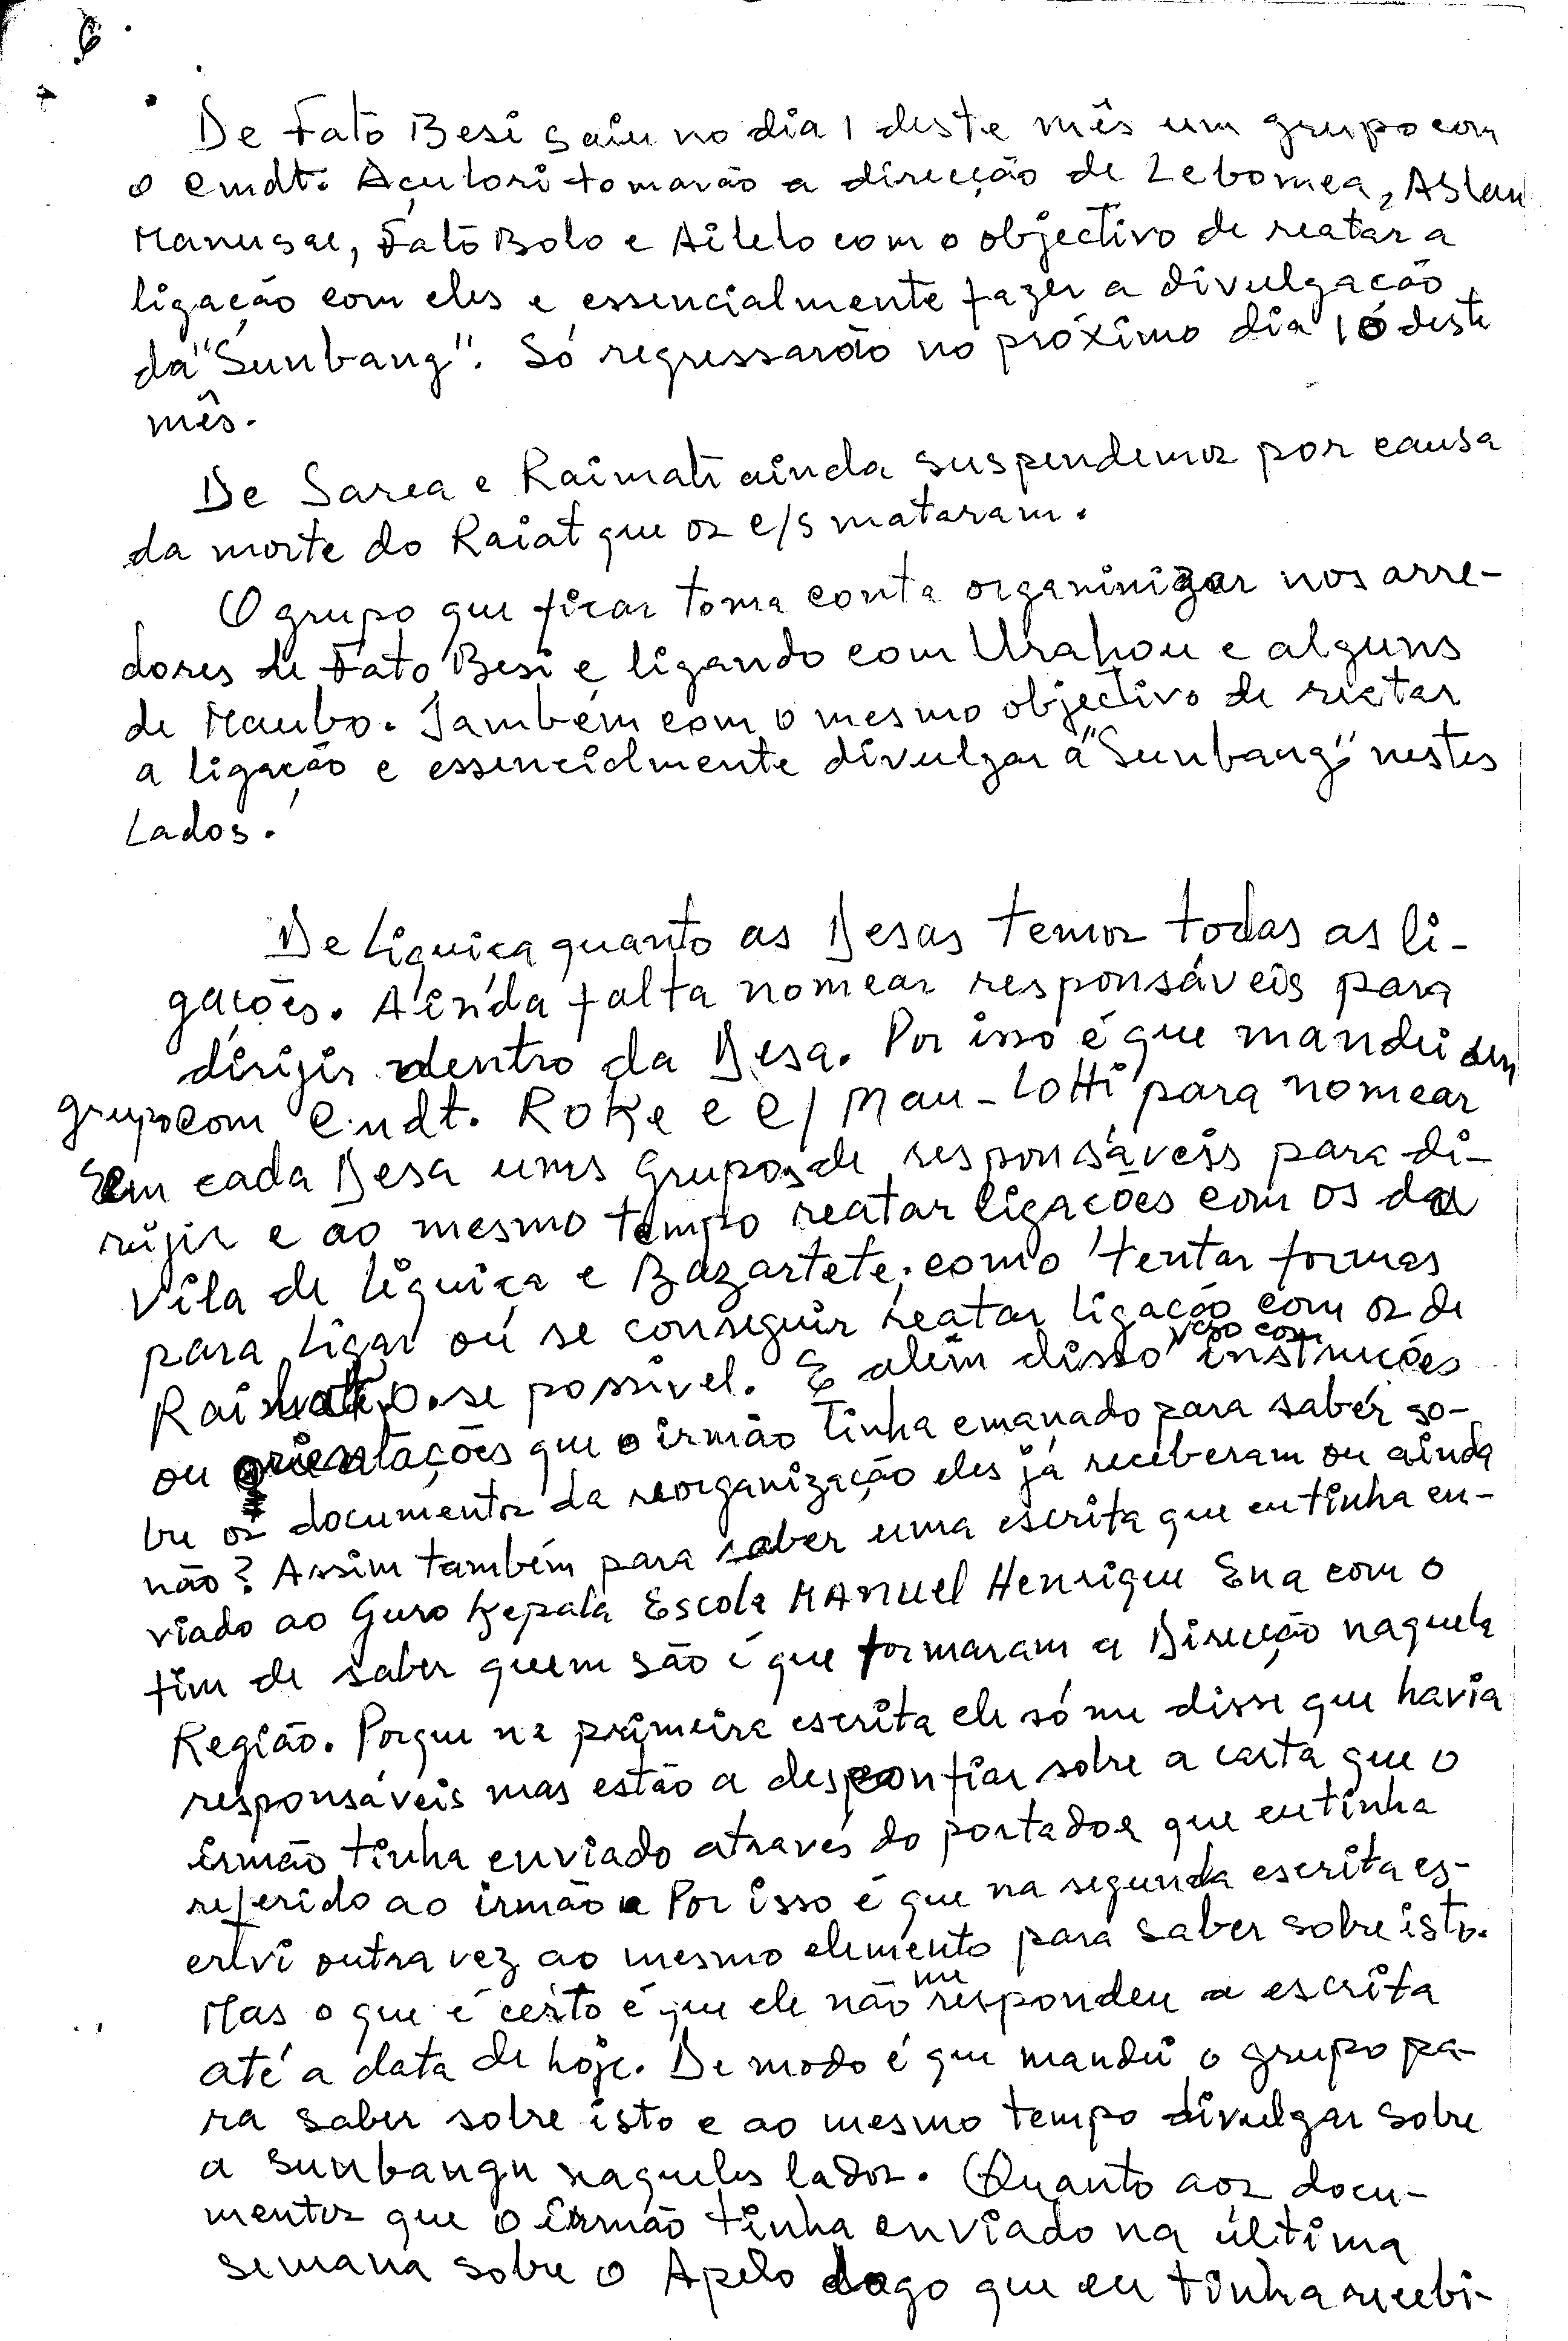 6
De Fato Besi saiu no dia 1 deste mês um grupo com
o Cmdt. Açulori tomarão a direcção de Lebomea, Aslau
Manusae, Fato Bolo e Ailelo com o objectivo de reatar a
ligação com eles e essencialmente fazer a divulgação
da "Sunbang". Só regressarão no próximo dia 10 deste
mês.
De Sarea e Raimati ainda suspendemos por causa
da morte do Raiat que os c/s mataram.
O grupo que ficar toma conta organinizar nos arre-
dores de Fato Besi e ligando com Urahou e alguns
de Maubo. Também com o mesmo objectivo de reatar
a ligação e essencialmente divulgar a "Sunbang" nestes
Lados.
De Liquiça quanto as Desas temos todas as li-
gações. Ainda falta nomear responsáveis para
dirijir dentro da Desa. Por isso é que mandei um
grupo com Cmdt. Roke e C/ Mau-Lotti para nomear
em cada Desa ums grupos de responsáveis para di-
rijir e ao mesmo tempo reatar ligações com os da
Vila de Liquiça e Bazartete; como tentar formas
para ligar ou se conseguir reatar ligação com os de
se possivel. E além disso vão com instruções
ou orientações que o irmão tinha emanado para saber so-
bre os documentos da reorganização eles já receberam ou ainda
não? Assim também para saber uma escrita que eu tinha en-
viado ao Guro Kepala Escola Manuel Henrique Ena com o
fim de saber quem são é que formaram a Direcção naquela
Região. Porque na primeira escrita ele só me disse que havia
responsáveis mas estão a desconfiar sobre a carta que o
irmão tinha enviado através do portador que eu tinha
referido ao irmão. Por isso é que na segunda escrita es-
crevi outra vez ao mesmo elemento para saber sobre isto.
Mas o que é certo é que ele não me respondeu a escrita
até a data de hoje. De modo é que mandei o grupo pa-
ra saber sobre isto e ao mesmo tempo divulgar sobre
a Sunbangu naqueles lados. Quanto aos docu-
mentos que o irmão tinha enviado na última
semana sobre o Apelo logo que eu tinha recebi-